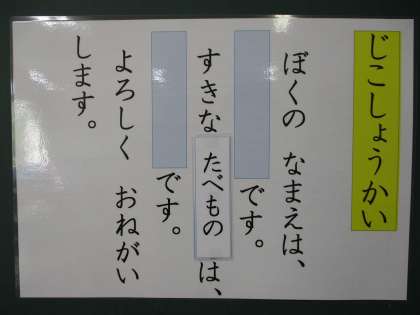 じこしょうかい
ぼくの なまえは、
です。
すきな たべもの は、
です。
よろしく おねがい
します。